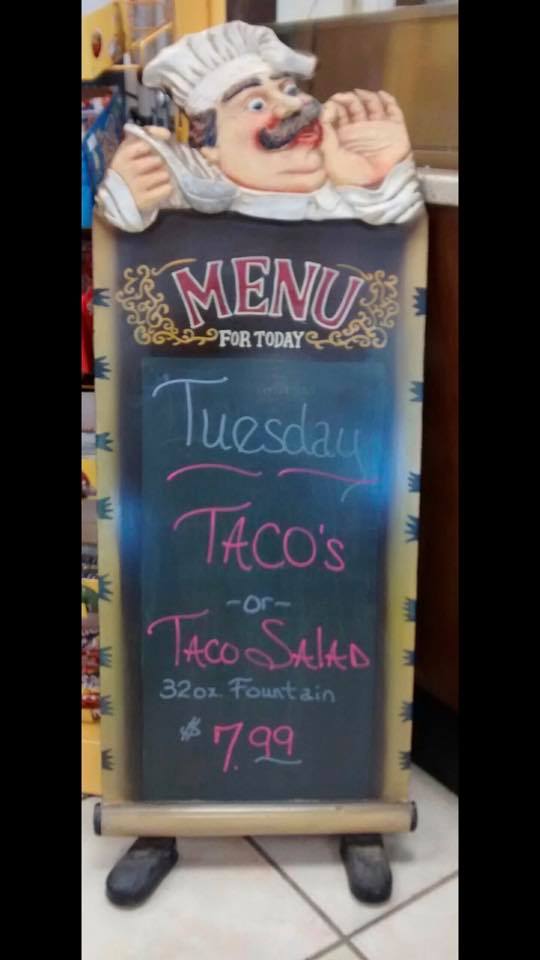 MENU
FOR TODAY
Tuesday
TACO's
-or-
TACO SALAD
32oz. Fountain
$7.99